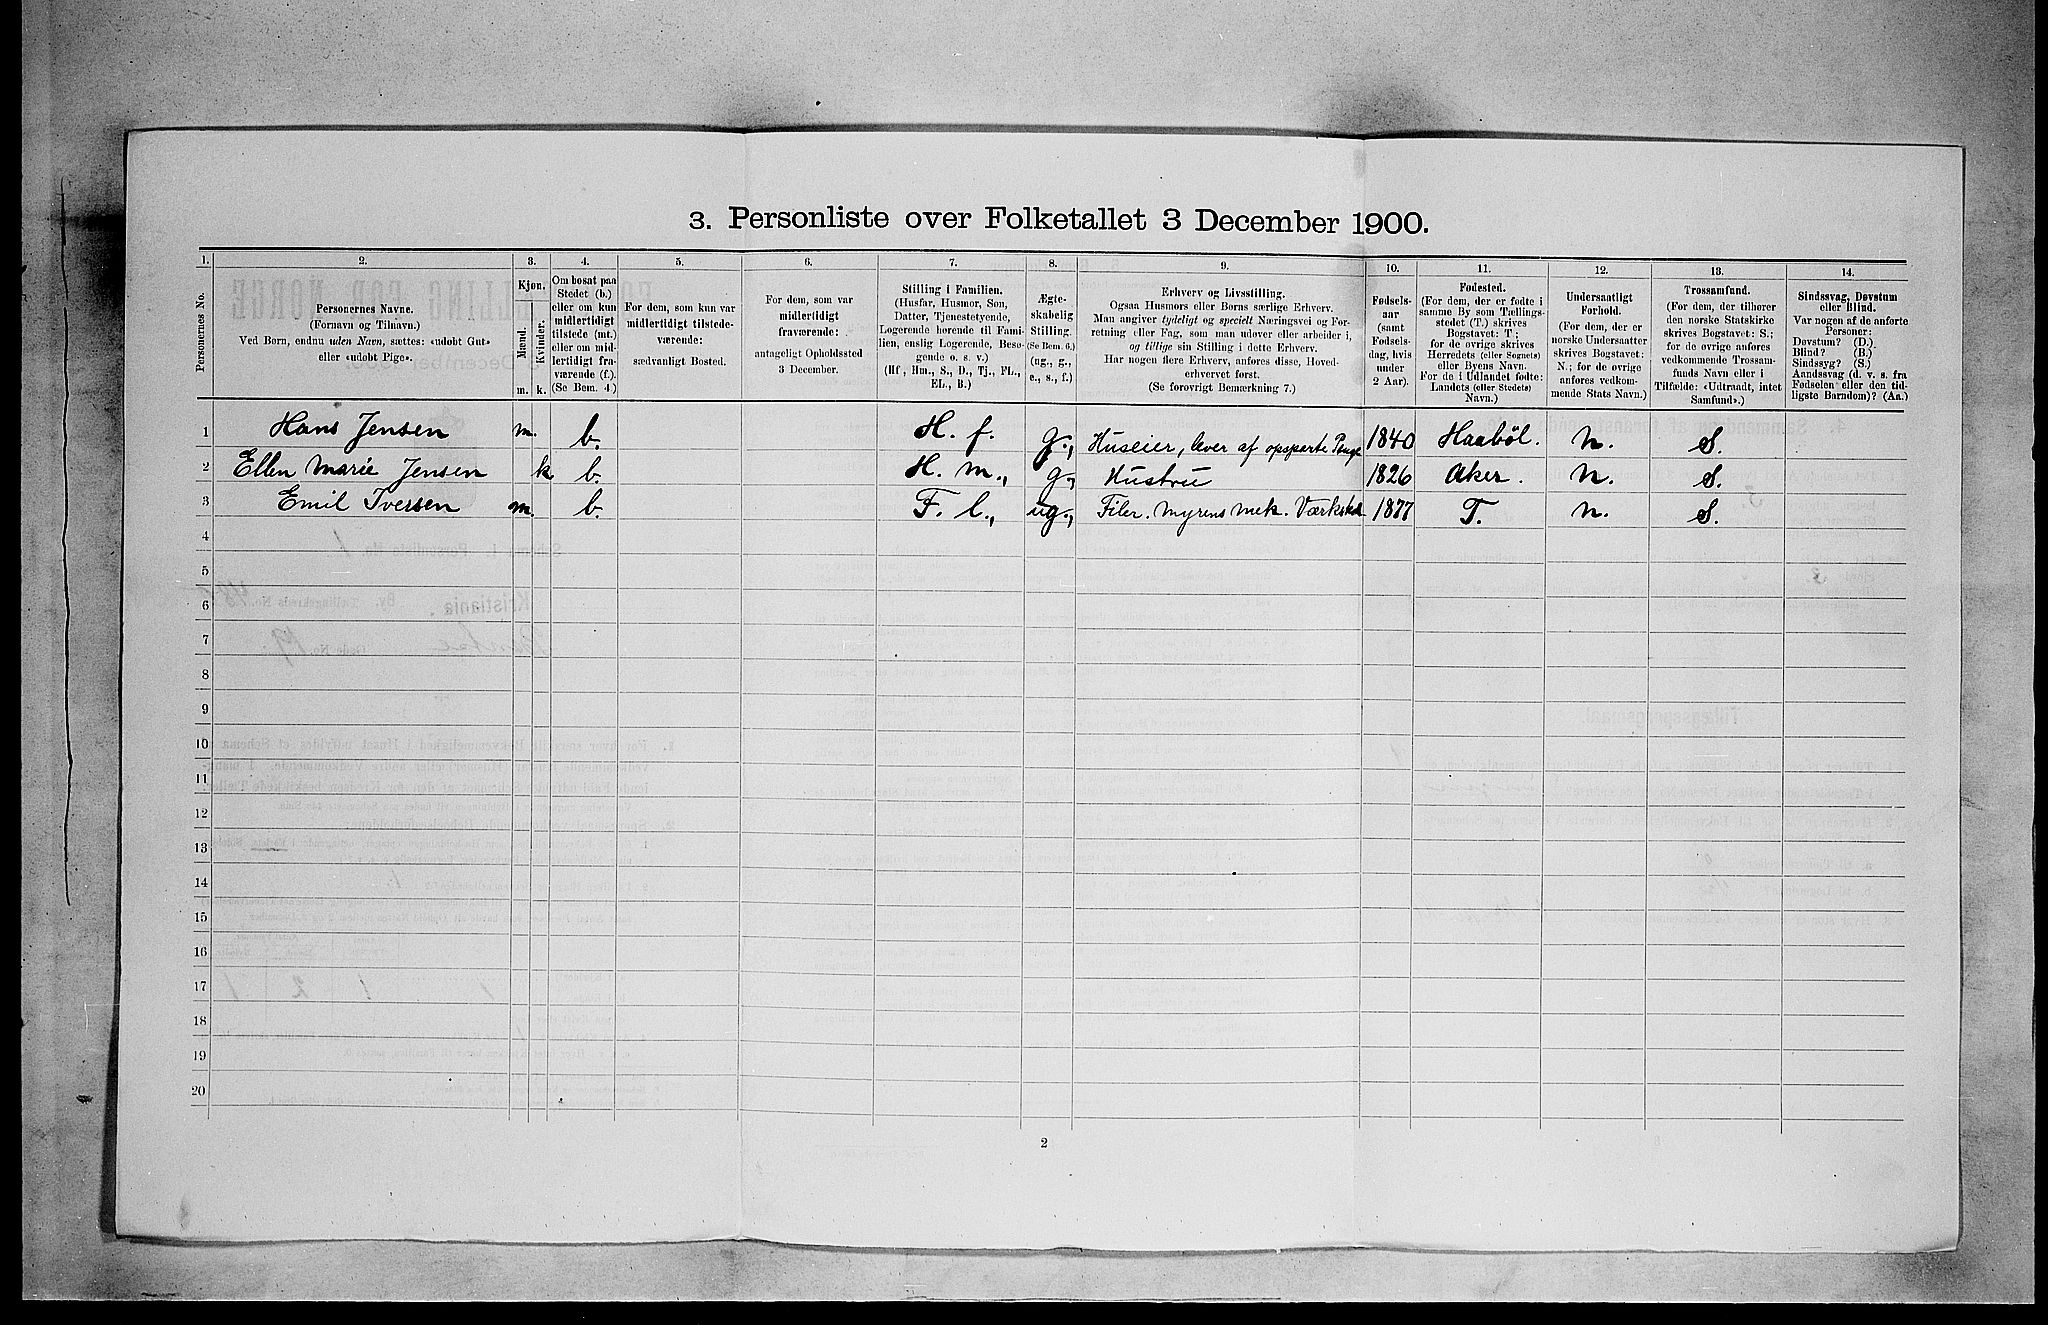 3. Personliste over Folketallet 3 December 1900.
1. 2. 3. 4. 5. 6. 7. 8. 9. 10. 11. 12. 13. 14.
Personernes No.
Personernes Navne.
(Fornavn og Tilnavn.)
Ved Børn, endnu uden Navn, sættes: «udøbt Gut»
eller «udøbt Pige».
Kjøn.
Mænd.
Kvinder.
m. k.
Om bosat paa
Stedet (b.)
eller om kun
midlertidigt
tilstede (mt.)
eller om mid-
lertidigt fra-
værende (f.).
(Se Bem. 4.)
For dem, som kun var
midlertidigt tilstede-
værende:
sædvanligt Bosted.
For dem, som var
midlertidigt
fraværende:
antageligt Opholdssted
3 December.
Stilling i Familien.
(Husfar, Husmor, Søn,
Datter, Tjenestetyende,
Logerende hørende til Fami-
lien, enslig Logerende, Besø-
gende o. s. v.)
(Hf., Hm., S., D., Tj., FL.,
EL., B.)
Ægte-
skabelig
Stilling.
(Se Bem. 6.)
(ug., g.,
e., s., f.)
Erhverv og Livsstilling.
Ogsaa Husmors eller Børns særlige Erhverv.
Man angiver tydeligt og specielt Næringsvei og For-
retning eller Fag, som man udøver eller arbeider i,
og tillige sin Stilling i dette Erhverv.
Har nogen flere Erhverv, anføres disse, Hoved-
erhvervet først.
(Se forøvrigt Bemærkning 7.)
Fødsels-
aar
(samt
Fødsels-
dag, hvis
under
2 Aar).
Fødested.
(For dem, der er fødte i
samme By som Tællings-
stedet (T.) skrives
Bogstavet: T.;
for de øvrige skrives
Herredets (eller Sognets)
eller Byens Navn.
For de i Udlandet fødte:
Landets (eller Stedets)
Navn.)
Undersaatligt
Forhold.
(For dem, der er
norske Undersaatter
skrives Bogstavet:
N.; for de øvrige
anføres vedkom-
mende Stats Navn.)
Trossamfund.
(For dem, der tilhører
den norske Statskirke
skrives Bogstavet: S.;
for de øvrige anføres
vedkommende Trossam-
funds Navn eller i
Tilfælde: «Udtraadt, intet
Samfund».)
Sindssvag, Døvstum
eller Blind.
Var nogen af de anførte
Personer:
Døvstum? (D.)
Blind? (B.)
Sindssyg? (S.)
Aandssvag (d. v. s. fra
Fødselen eller den tid-
ligste Barndom)? (Aa.)
1 Hans Jensen m. b. H. f. g., Huseier, lever af opsparte Penge 1840 Haabøl. n. S.
2 Ellen Marie Jensen k b. H. m., g., Hustru 1826 Aker. n. S.
3 Emil Iversen m. b. F. l., ug., Filer. Myrens mek. Værksted 1877 T. n. S.
4
5
6
7
8
9
10
11
12
13
14
15
16
17
18
19
20
2